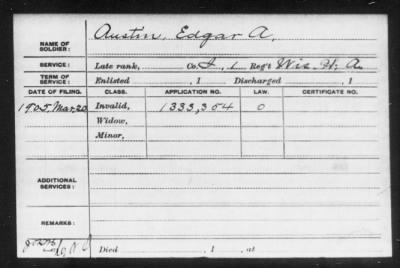 NAME OF SOLDIER: Austin, Edgar A.
SERVICE: Late rank, Co. I, 1 Reg't Wis. H. A.
TERM OF SERVICE: Enlisted , 1 Discharged , 1
DATE OF FILING. CLASS. APPLICATION NO. LAW. CERTIFICATE NO.
1905, Mar. 20 Invalid, 1333,354 O
Widow,
Minor,
ADDITIONAL SERVICES:
REMARKS:
Died , 1 , at